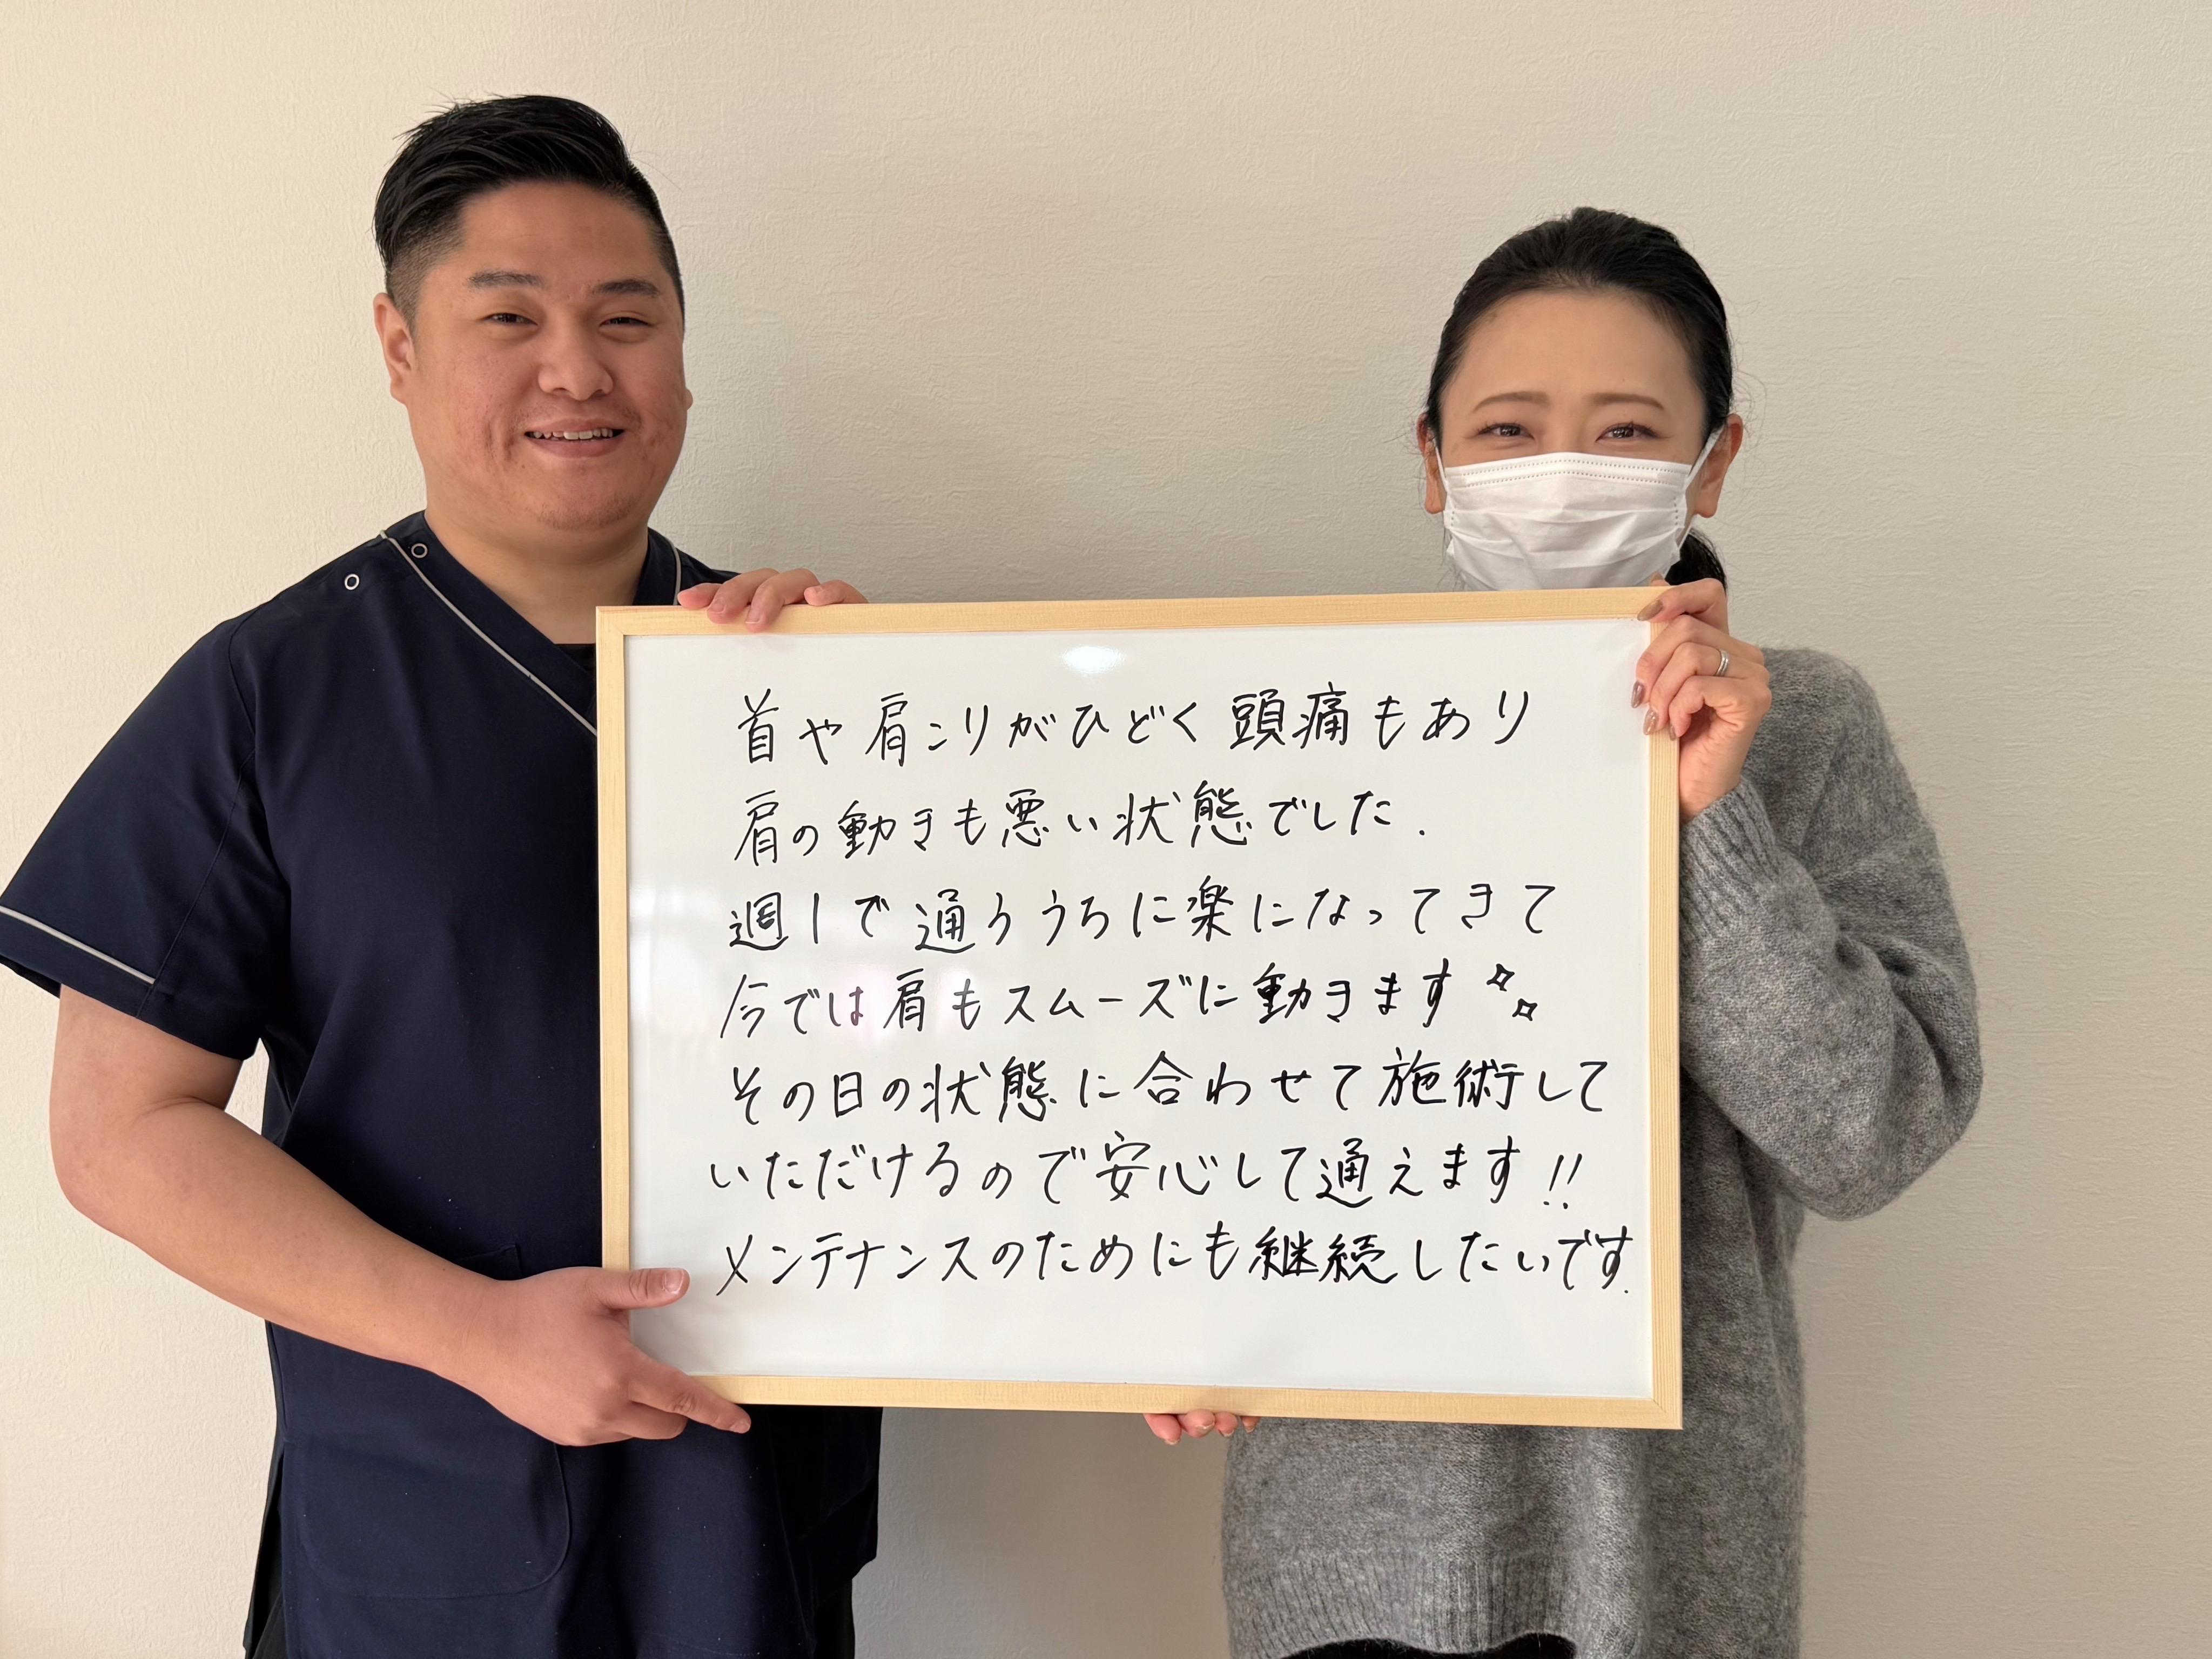 首や肩こりがひどく頭痛もあり
肩の動きも悪い状態でした.
週1で通ううちに楽になってきて
今では肩もスムーズに動きます
その日の状態に合わせて施術して
いただけるので安心して通えます!!
メンテナンスのためにも継続したいです.